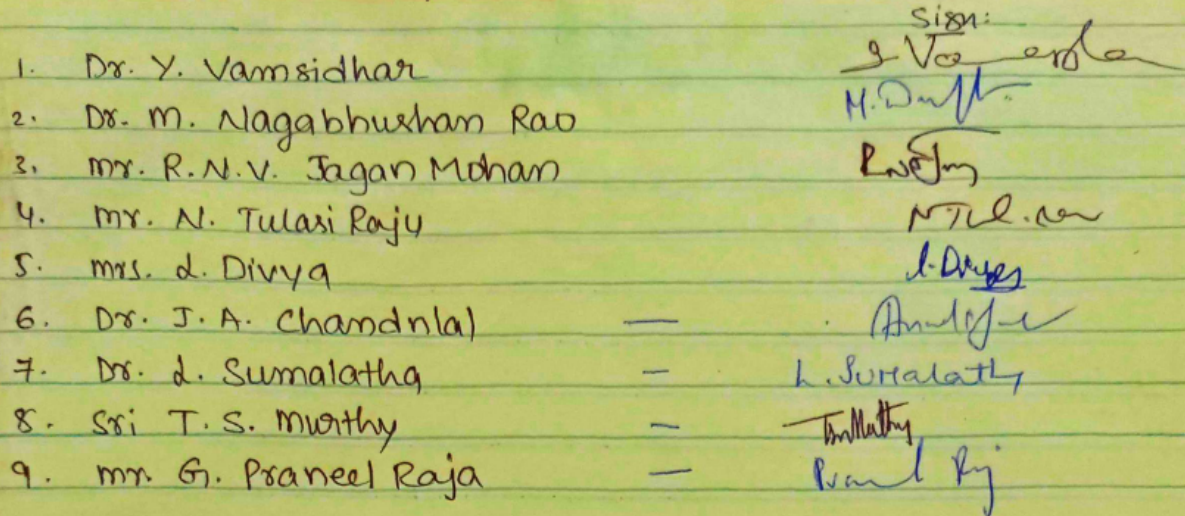 Sign:
1. Dr. Y. Vamsidhar
2. Dr. M. Nagabhushan Rao M.
3. Mr. R.N.V. Jagan Mohan
4. Mr. N. Tulasi Raju
5. Mrs. L. Divya L. Divya
6. Dr. J. A. Chandnlal —
7. Dr. L. Sumalatha — L. Sumalath
8. Sri T. S. Murthy —
9. Mr. G. Praneel Raja —